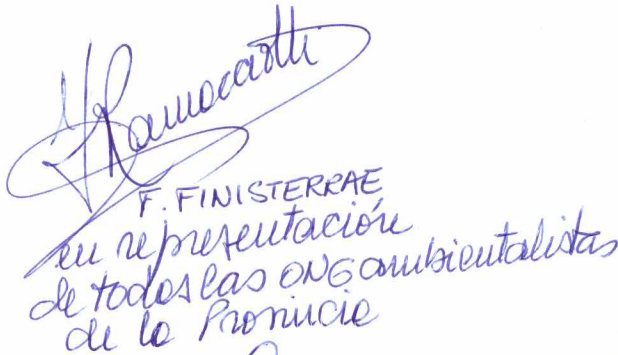 F. FINISTERRAE
en representación
de todas las ONG ambientalistas
de la Provincia